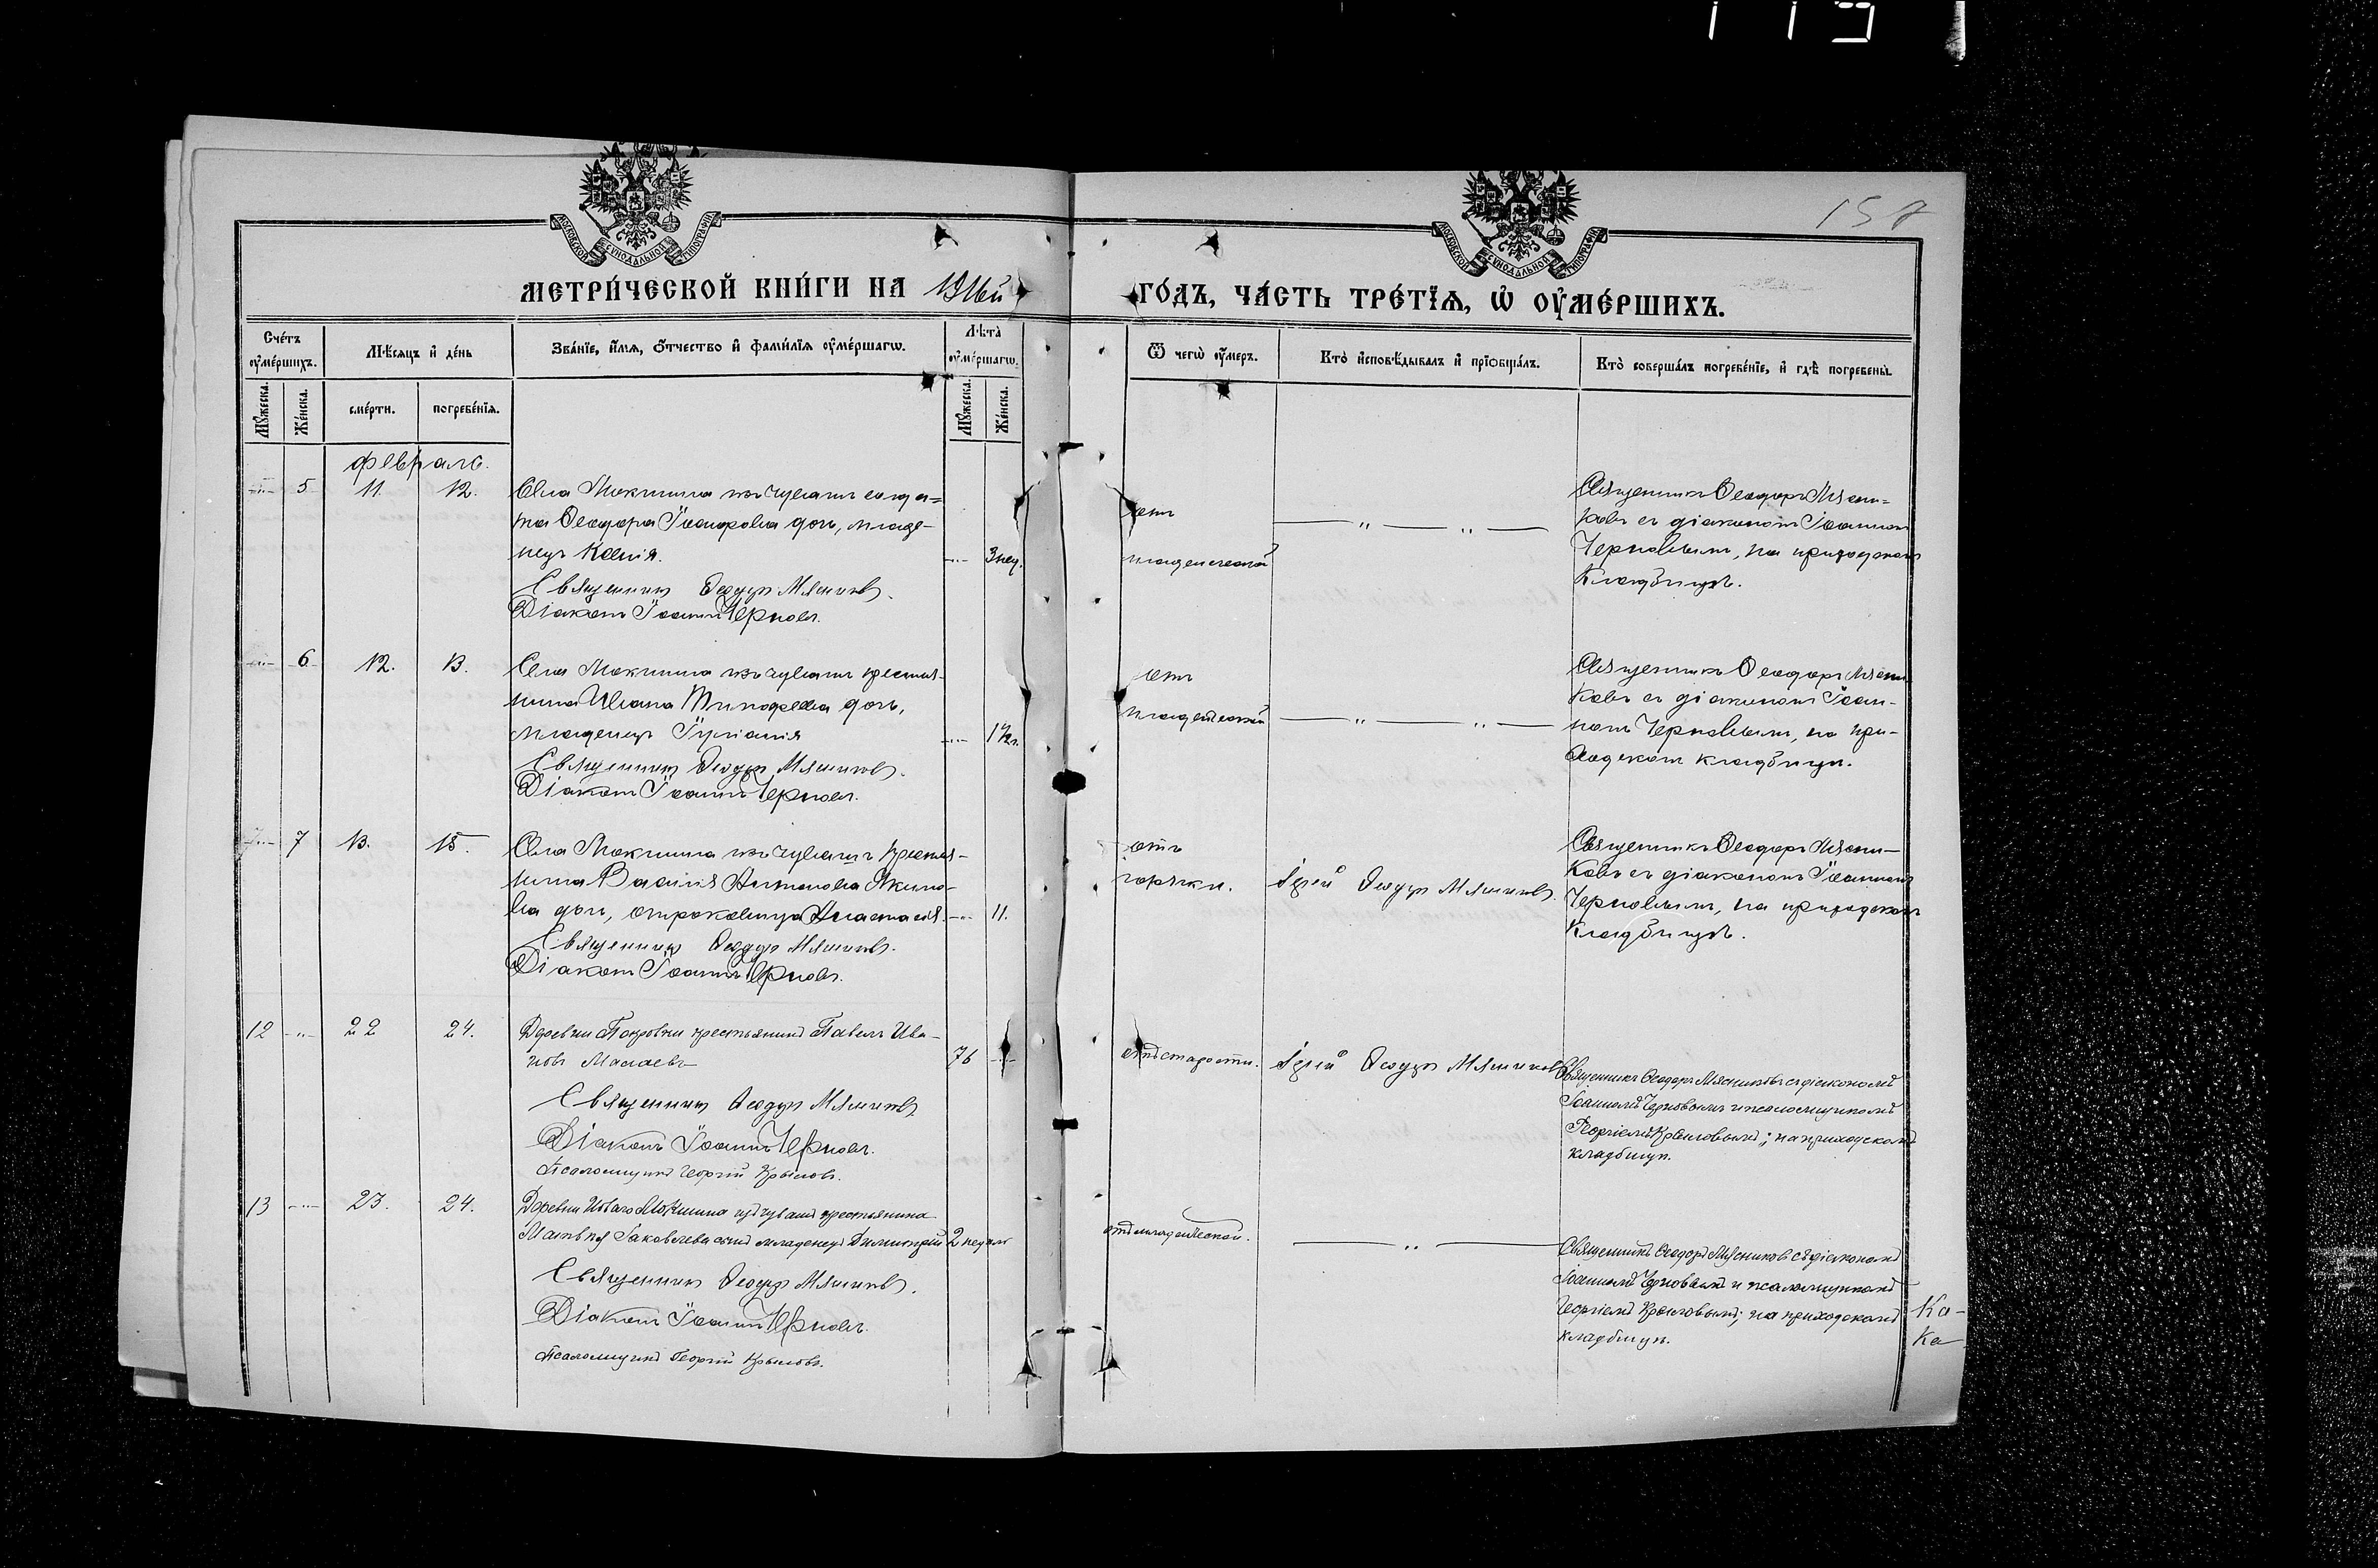 157
МОСКОВСКОЙ СѴНОДАЛЬНОЙ ТИПОГРАФІИ
МОСКОВСКОЙ СѴНОДАЛЬНОЙ ТИПОГРАФІИ
МЕТРИ́ЧЕСКОЙ КНИ́ГИ НА 1916й ГО́ДЪ, ЧА́СТЬ ТРЕ́ТЇѦ, Ѡ҆ ОУ҆МЕ́РШИХЪ.
Сче́тъ оу҆ме́ршихъ.
Мꙋ́жеска.
Же́нска.
Мѣ́сяцъ и҆ де́нь
сме́рти.
погребе́нїѧ.
Зва́нїе, и҆́мѧ, ѻ҆́тчество и҆ фами́лїѧ оу҆ме́ршагѡ.
Лѣ́та оу҆ме́ршагѡ.
Мꙋ́жеска.
Же́нска.
Ѿ чегѡ̀ оу҆́меръ.
Кто̀ и҆сповѣ́дывалъ и҆ прїѻбща́лъ.
Кто̀ соверша́лъ погребе́нїе, и҆ гдѣ̀ погребены̀.
февраль.
5 11. 12.
Села Мокшина изъ чувашъ солда=
та Ѳеодора Іосифова дочь, младе-
нецъ Ксенія.
3 нед.
Священникъ Ѳеодоръ Мясниковъ.
Діаконъ Іоаннъ Черновъ.
отъ
младенческой
Священникъ Ѳеодоръ Мясни-
ковъ съ діакономъ Іоанномъ
Черновымъ, на приходскомъ
кладбищѣ.
6 12. 13.
Села Мокшина изъ чувашъ крестья-
нина Ивана Тимофеева дочь,
младенецъ Іуліанія
Священникъ Ѳеодоръ Мясниковъ.
Діаконъ Іоаннъ Черновъ.
отъ
младенческой
Священникъ Ѳеодоръ Мясни-
ковъ съ діакономъ Іоан-
номъ Черновымъ, на при-
ходскомъ кладбищѣ.
7 13. 15.
Села Мокшина изъ чувашъ крестья-
нина Василія Антонова Якимо-
ва дочь, отроковица Анастасія.
11.
Священникъ Ѳеодоръ Мясниковъ.
Діаконъ Іоаннъ Черновъ.
отъ
горячки.
Іерей Ѳеодоръ Мясниковъ.
Священникъ Ѳеодоръ Мясни-
ковъ съ діакономъ Іоанномъ
Черновымъ, на приходскомъ
кладбищѣ.
12 22 24.
Деревни Покровки крестьянинъ Павелъ Ива-
новъ
76
Священникъ Ѳеодоръ Мясниковъ
Діаконъ Іоаннъ Черновъ.
Псаломщикъ Георгій Крыловъ.
отъ старости.
Іерей Ѳеодоръ Мясниковъ
Священникъ Ѳеодоръ Мясниковъ съ діакономъ
Іоанномъ Черновымъ и псаломщикомъ
Георгіемъ Крыловымъ; на приходскомъ
кладбищѣ.
13 23. 24.
Деревни Новаго Мокшина изъ чувашъ крестьянина
Матвѣя Іаковлева сынъ младенецъ Димитрій
2 недѣли
Священникъ Ѳеодоръ Мясниковъ.
Діаконъ Іоаннъ Черновъ.
Псаломщикъ Георгій Крыловъ.
отъ младенческой.
Священникъ Ѳеодоръ Мясниковъ съ діакономъ
Іоанномъ Черновымъ и псаломщикомъ
Георгіемъ Крыловымъ; на приходскомъ
кладбищѣ.